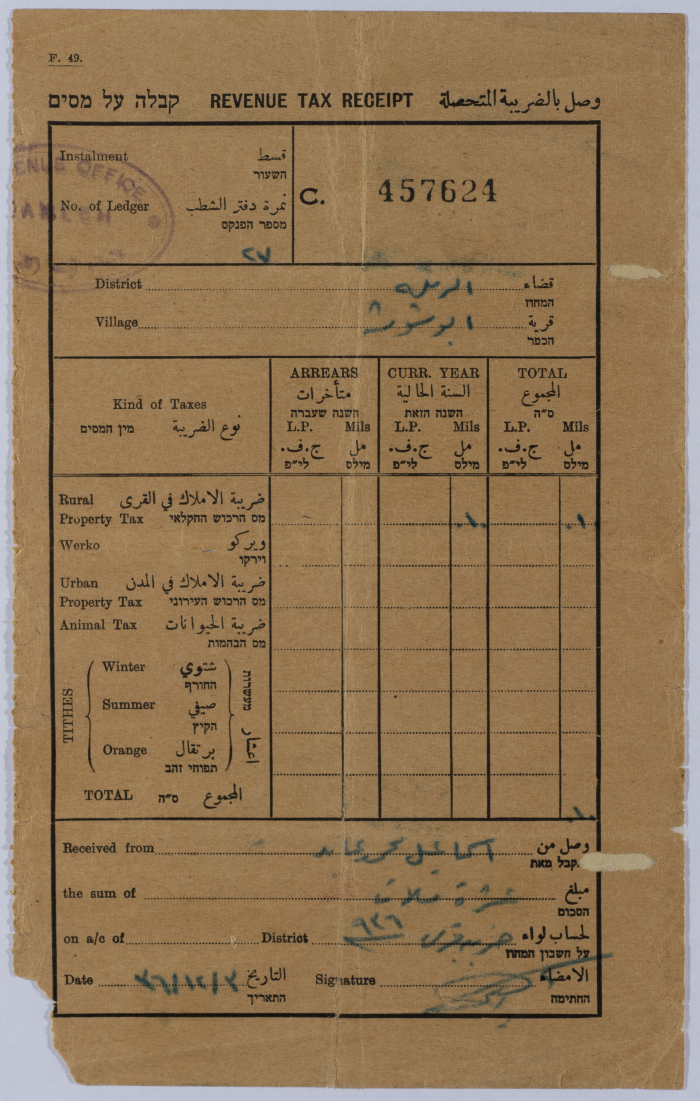 F. 49.
קבלה על מסים REVENUE TAX RECEIPT وصل بالضريبة المتحصلة
Instalment قسط
השעור
No. of Ledger نمرة دفتر الشطب
מספר הפנקס
٢٧
C. 457624
REVENUE OFFICE
RAMLEH
District الرملة قضاء
המחוז
Village ابو شوشة قرية
הכפר
Kind of Taxes نوع الضريبة מין המסים
ARREARS
متأخرات
השנה שעברה
L.P. Mils
ج.ف. مل
לי״פ מילס
CURR. YEAR
السنة الحالية
השנה הזאת
L.P. Mils
ج.ف. مل
לי״פ מילס
TOTAL
المجموع
ס״ה
L.P. Mils
ج.ف. مل
לי״פ מילס
Rural ضريبة الاملاك في القرى
Property Tax מס הרכוש החקלאי ٠١٠ ٠١٠
Werko ويركو
וירקו
Urban ضريبة الاملاك في المدن
Property Tax מס הרכוש העירוני
Animal Tax ضريبة الحيوانات
מס הבהמות
TITHES
Winter شتوي
החורף
Summer صيفي
הקיץ
Orange برتقال
תפוחי זהב
מעשרות
اعشار
TOTAL ס״ה المجموع ٠١٠
Received from اسماعيل محمد وصل من
קבל מאת
the sum of عشرة ملات مبلغ
הסכום
on a/c of District ٩٣٦ لحساب لواء
על חשבון המחוז
Date ٣٦/١٢/٣ التاريخ Signature الامضاء
התאריך החתימה